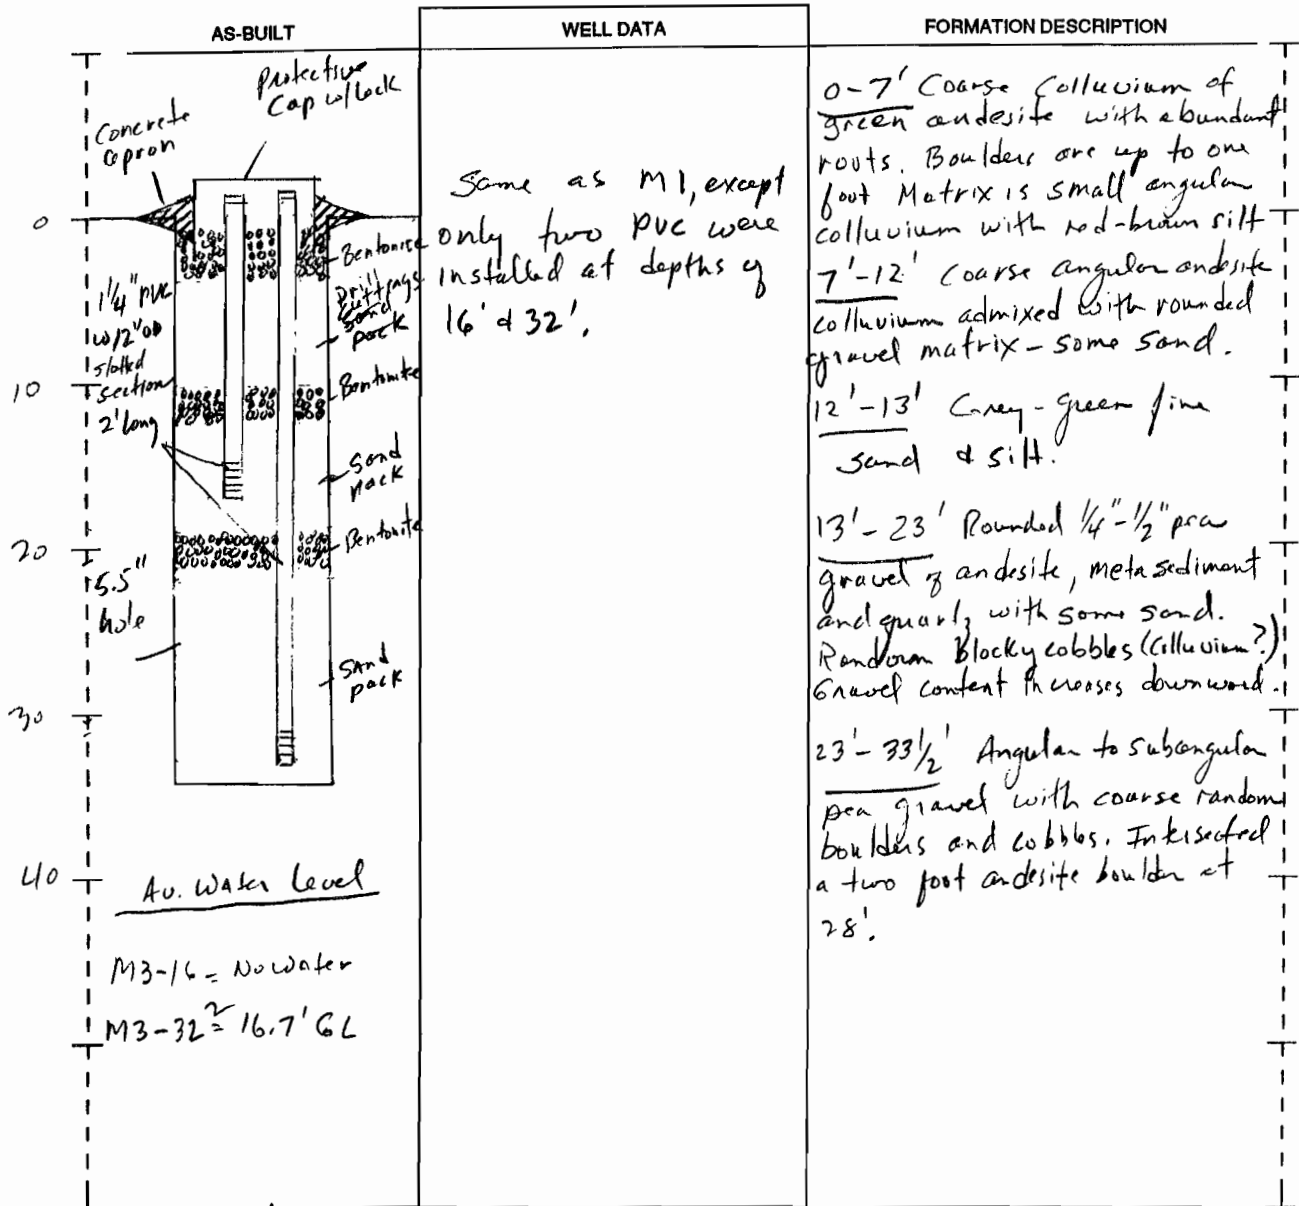 AS-BUILT
WELL DATA
FORMATION DESCRIPTION
Protective
Cap w/lock
Concrete
apron
0
Bentonite
Drill
cuttings
sand
pack
1 1/4" PVC
w/2" OD
slotted
section
2' long
10
Bentonite
Sand
pack
20
Bentonite
5.5"
hole
Sand
pack
30
40
Av. Water Level
M3-16 = No water
M3-32 ≅ 16.7' GL
Same as M1, except
only two PVC were
installed at depths of
16' & 32'.
0-7' Coarse Colluvium of
green andesite with abundant
roots. Boulders are up to one
foot Matrix is small angular
colluvium with red-brown silt
7'-12' Coarse angular andesite
colluvium admixed with rounded
gravel matrix - some sand.
12'-13' Grey-green fine
sand & silt.
13'-23' Rounded 1/4"-1/2" pea
gravel of andesite, metasediment
and quartz with some sand.
Random Blocky cobbles (Colluvium?)
Gravel content increases downward.
23'-33 1/2' Angular to subangular
pea gravel with coarse random
boulders and cobbles. Intersected
a two foot andesite boulder at
28'.